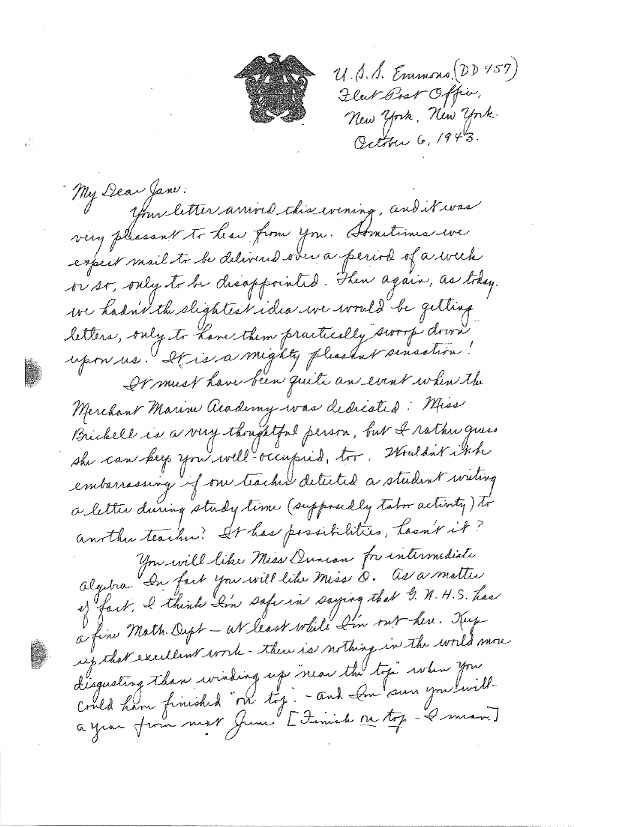 U.S.S. Emmons, (DD 457)
Fleet Post Office,
New York, New York.
October 6, 1943.
My Dear Jane:
Your letter arrived this evening, and it was
very pleasant to hear from you. Sometimes we
expect mail to be delivered over a period of a week
or so, only to be disappointed. Then again, as today,
we hadn't the slightest idea we would be getting
letters, only to have them practically "swoop down"
upon us. It is a mighty pleasant sensation!
It must have been quite an event when the
Merchant Marine Academy was dedicated! Miss
Brickell is a very thoughtful person, but I rather guess
she can keep you well-occupied, too. Wouldn't it be
embarrassing if one teacher detected a student writing
a letter during study time (supposedly tabor activity) to
another teacher? It has possibilities, hasn't it?
You will like Miss Duncan for intermediate
algebra. In fact you will like Miss D. As a matter
of fact, I think I'm safe in saying that G.N.H.S. has
a fine Math. Dept — at least while I'm out here. Keep
up that excellent work - there is nothing in the world more
disgusting than winding up "near the top" when you
could have finished "on top". - and I'm sure you will -
a year from next June. [Finish on top - I mean]